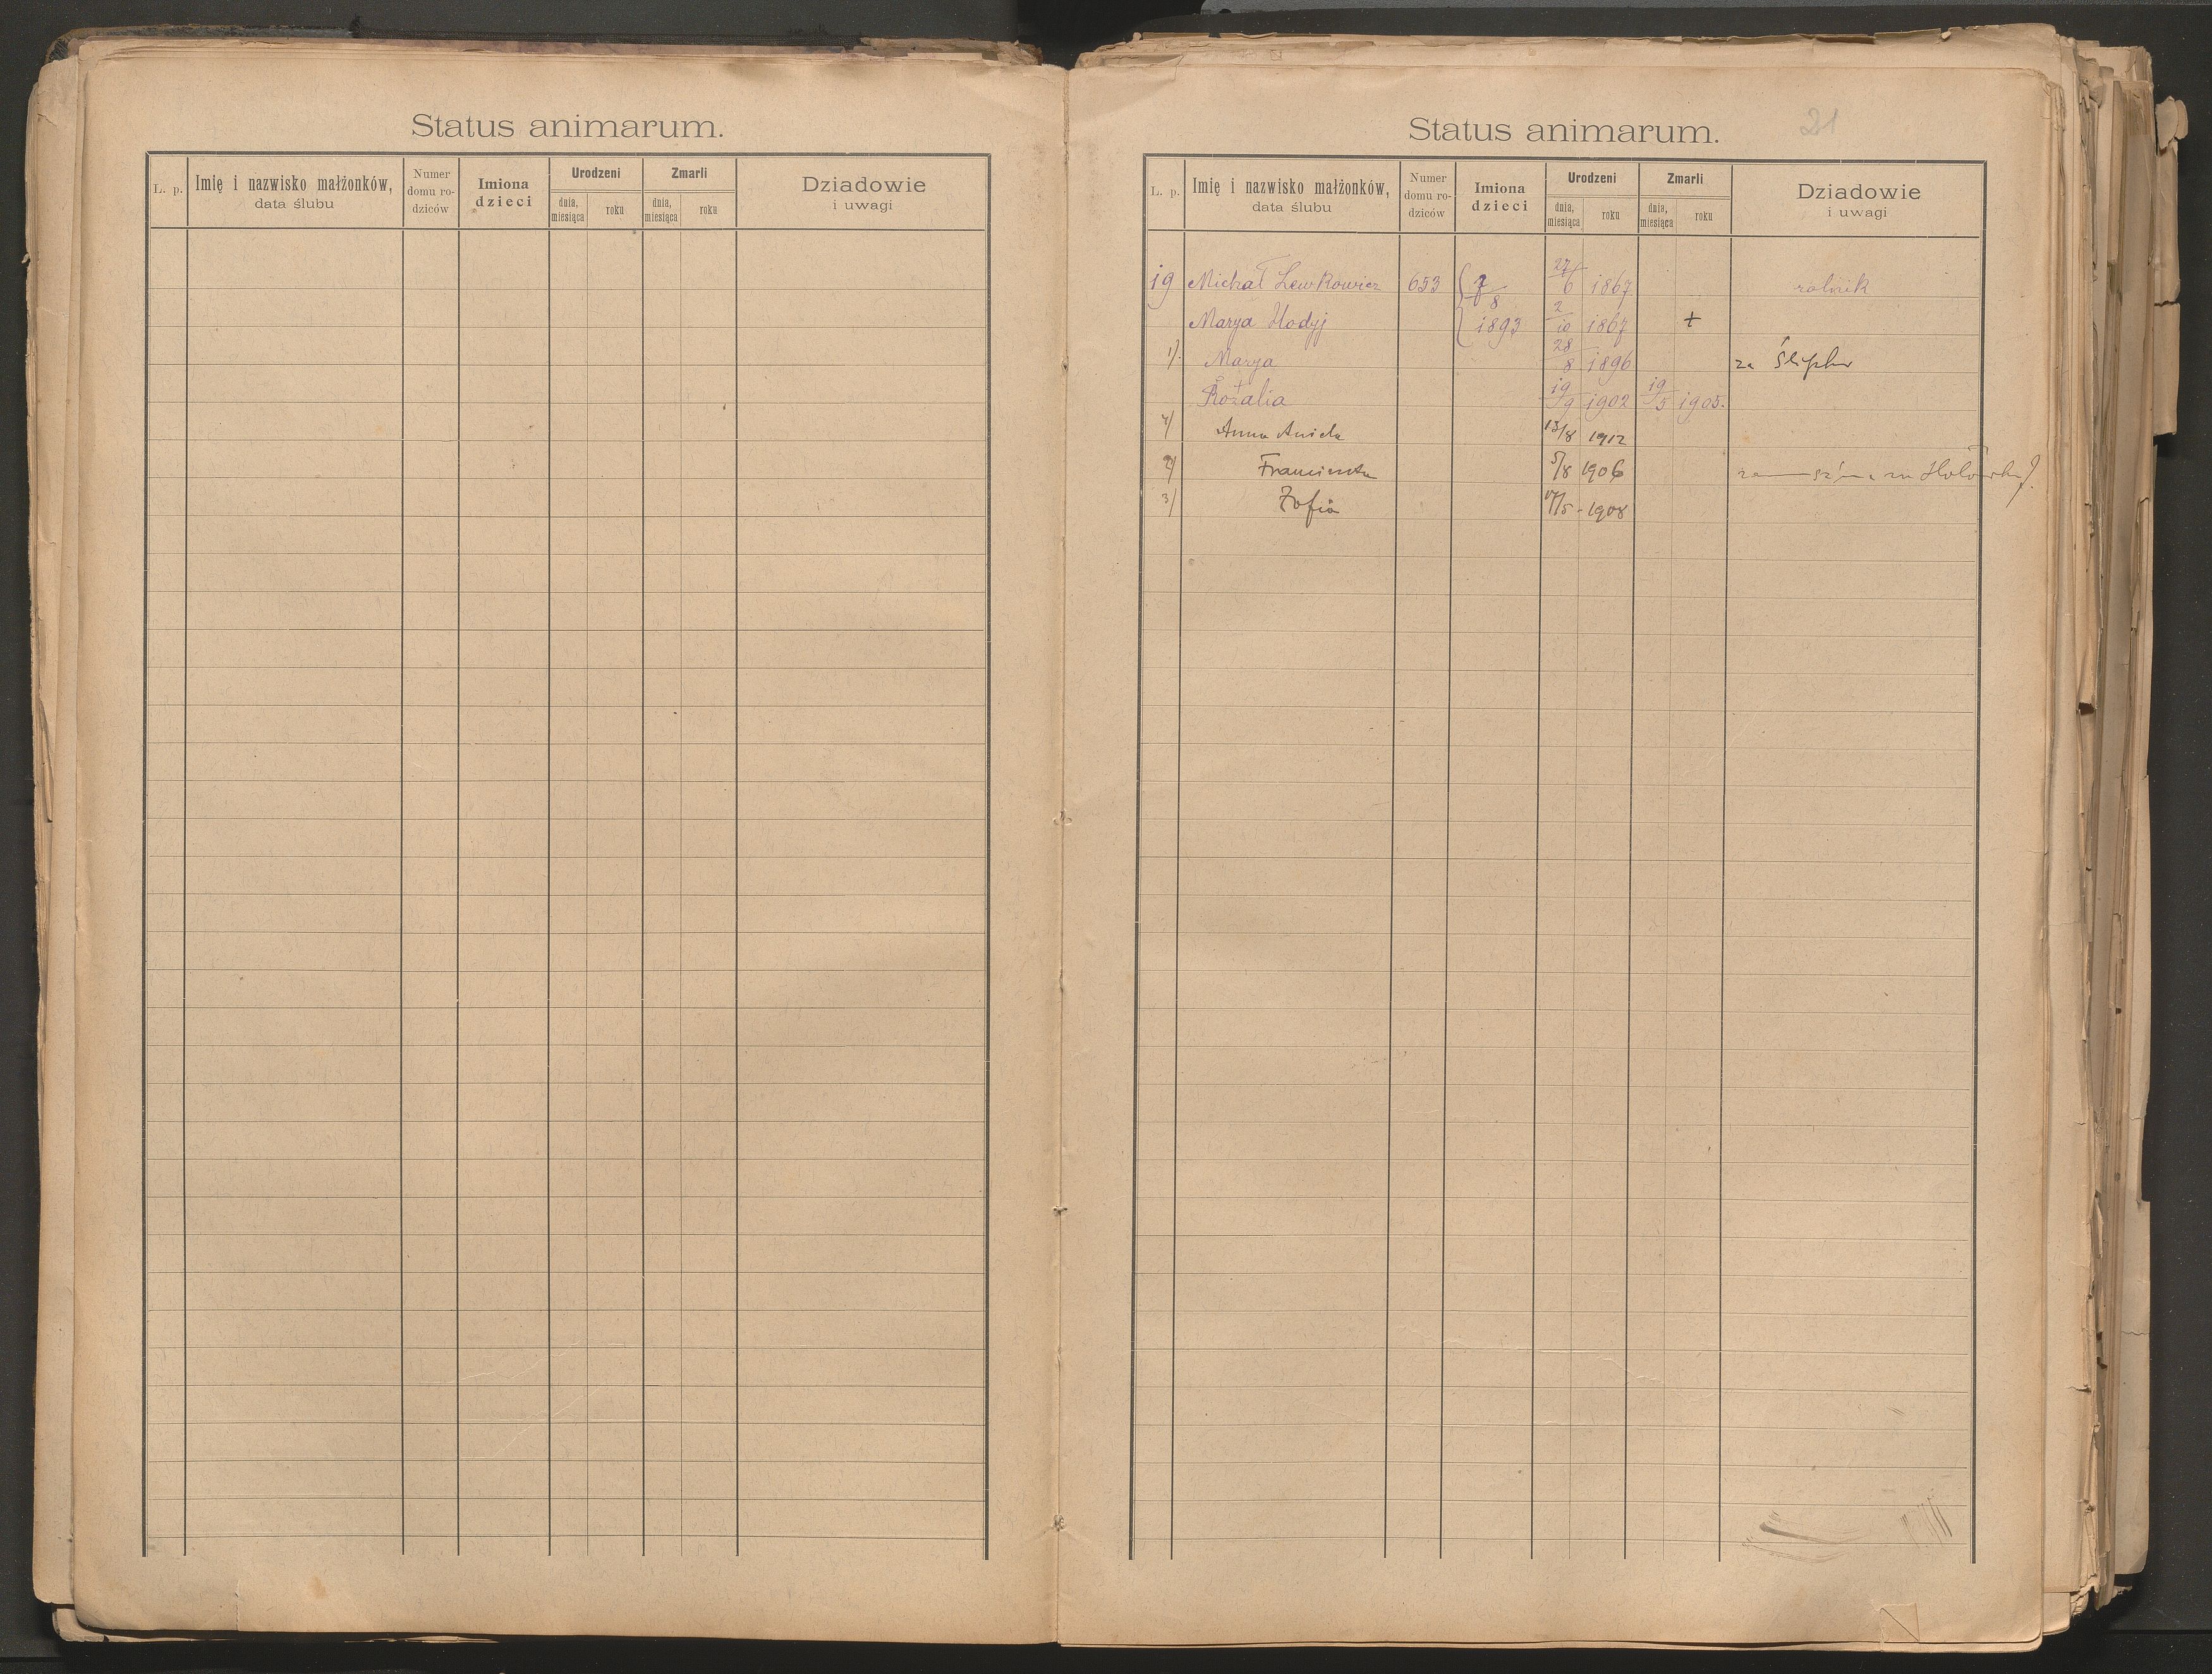 Status animarum.
L. p.
Imię i nazwisko małżonków,
data ślubu
Numer
domu ro-
dziców
Imiona
dzieci
Urodzeni
dnia,
miesiąca
roku
Zmarli
dnia,
miesiąca
roku
Dziadowie
i uwagi
Status animarum.
21
L. p.
Imię i nazwisko małżonków,
data ślubu
Numer
domu ro-
dziców
Imiona
dzieci
Urodzeni
dnia,
miesiąca
roku
Zmarli
dnia,
miesiąca
roku
Dziadowie
i uwagi
19 Michał Lewkowicz 653 7/8 27/6 1867 rolnik
Marya Hodyj 1893 2/10 1867 +
1). Marya 28/8 1896 za
Rozalia 19/9 1902 19/5 1905.
4/ Anna Aniela 13/8 1912
2/ Franciszka 5/8 1906
3/ Zofia 17/5 - 1908